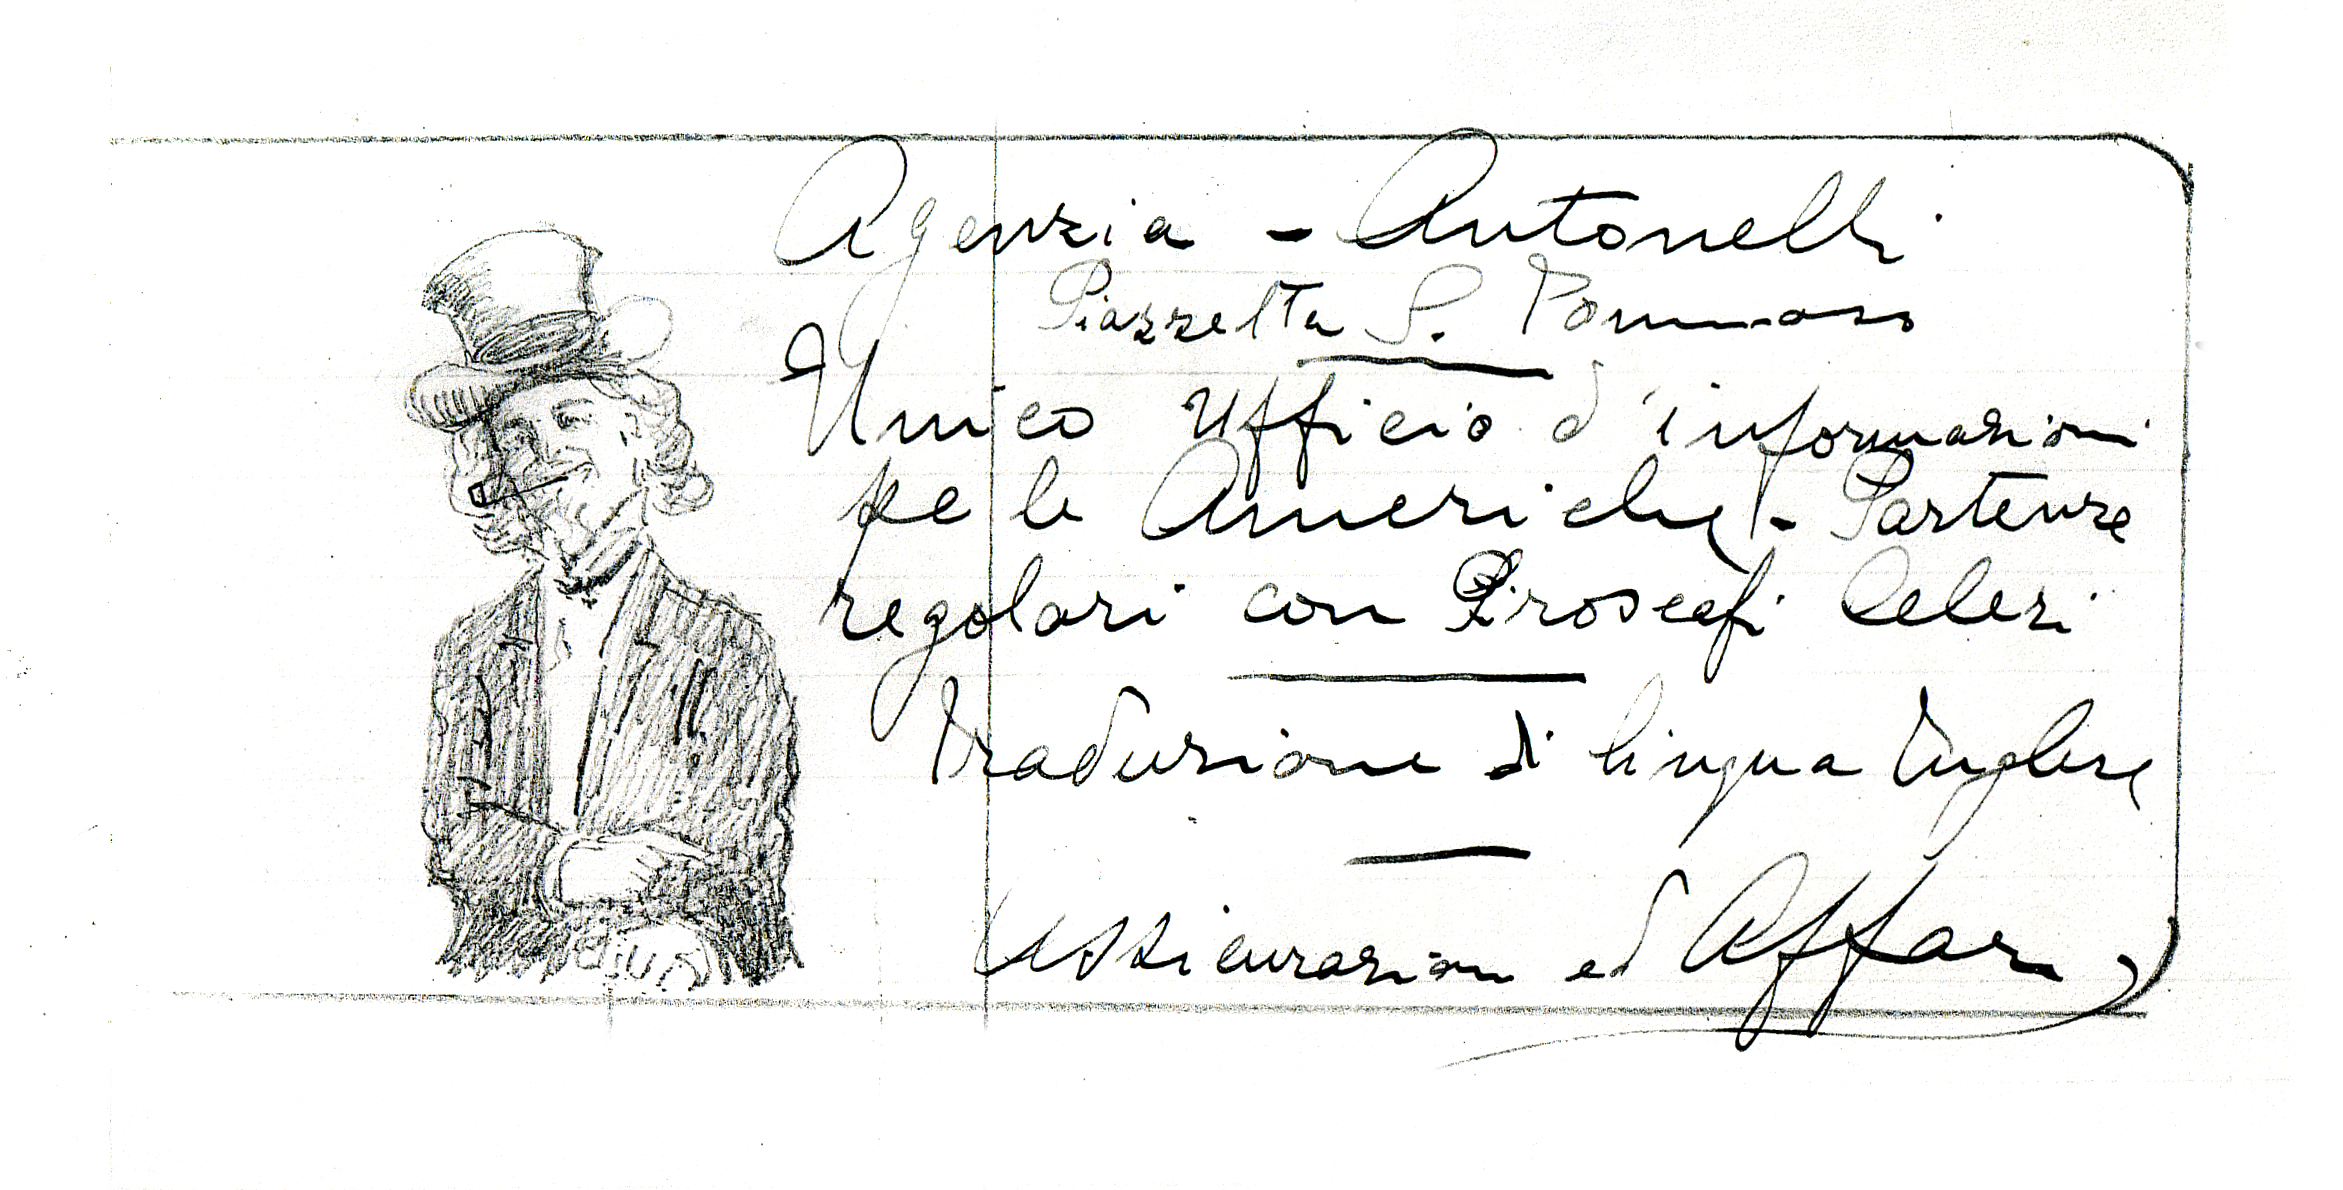 Agenzia - Antonelli
Piazzetta S. Tommaso
Unico Ufficio d'informazioni
pe le Americhe - Partenze
regolari con Piroscafi Celeri
Traduzione di lingua Inglese
Assicurazioni ed Affari